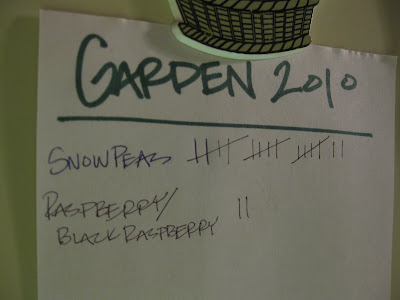 GARDEN 2010
SNOWPEAS 卌 卌 卌 ||
RASPBERRY/ ||
BLACK RASPBERRY